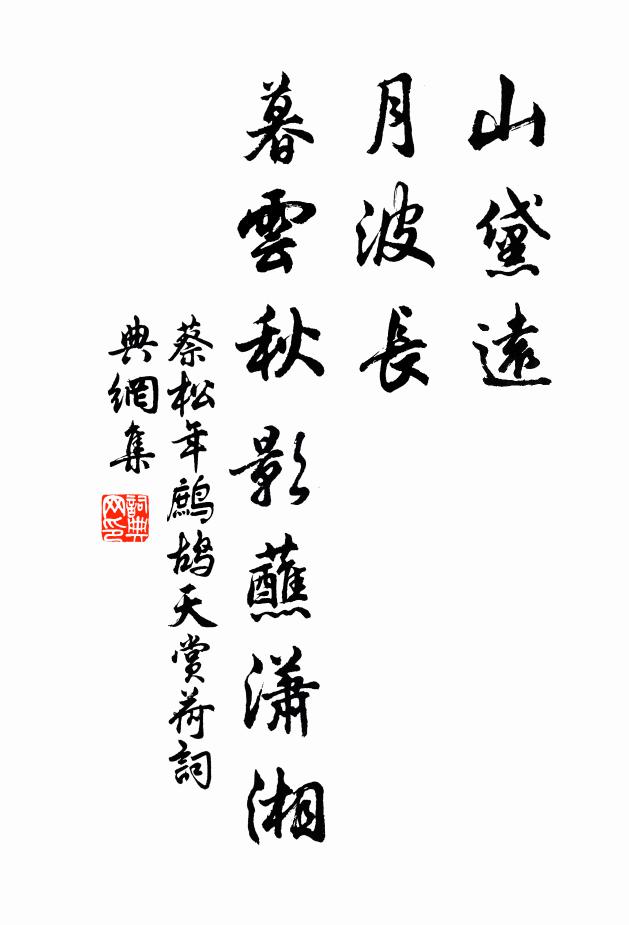 山黛遠
月波長
暮雲秋影蘸瀟湘
蔡松年鷓鴣天賞荷詞
典網集
詞典
网印